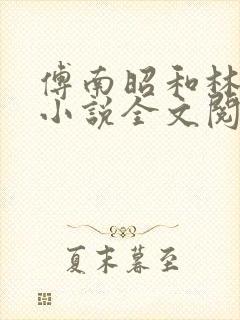 傅南昭和林
小说全文阅
夏末暮至